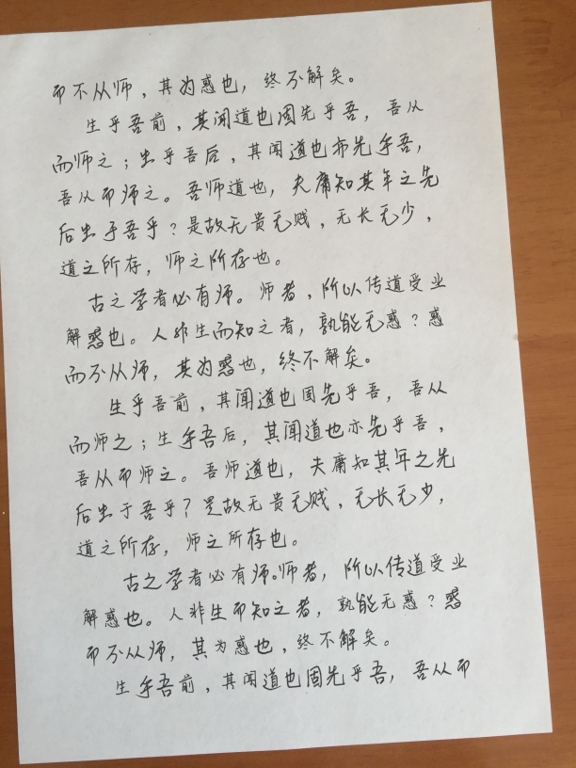 而不从师，其为惑也，终不解矣。
生乎吾前，其闻道也固先乎吾，吾从
而师之；生乎吾后，其闻道也亦先乎吾，
吾从而师之。吾师道也，夫庸知其年之先
后生于吾乎？是故无贵无贱，无长无少，
道之所存，师之所存也。
古之学者必有师。师者，所以传道受业
解惑也。人非生而知之者，孰能无惑？惑
而不从师，其为惑也，终不解矣。
生乎吾前，其闻道也固先乎吾，吾从
而师之；生乎吾后，其闻道也亦先乎吾，
吾从而师之。吾师道也，夫庸知其年之先
后生于吾乎？是故无贵无贱，无长无少，
道之所存，师之所存也。
古之学者必有师。师者，所以传道受业
解惑也。人非生而知之者，孰能无惑？惑
而不从师，其为惑也，终不解矣。
生乎吾前，其闻道也固先乎吾，吾从而